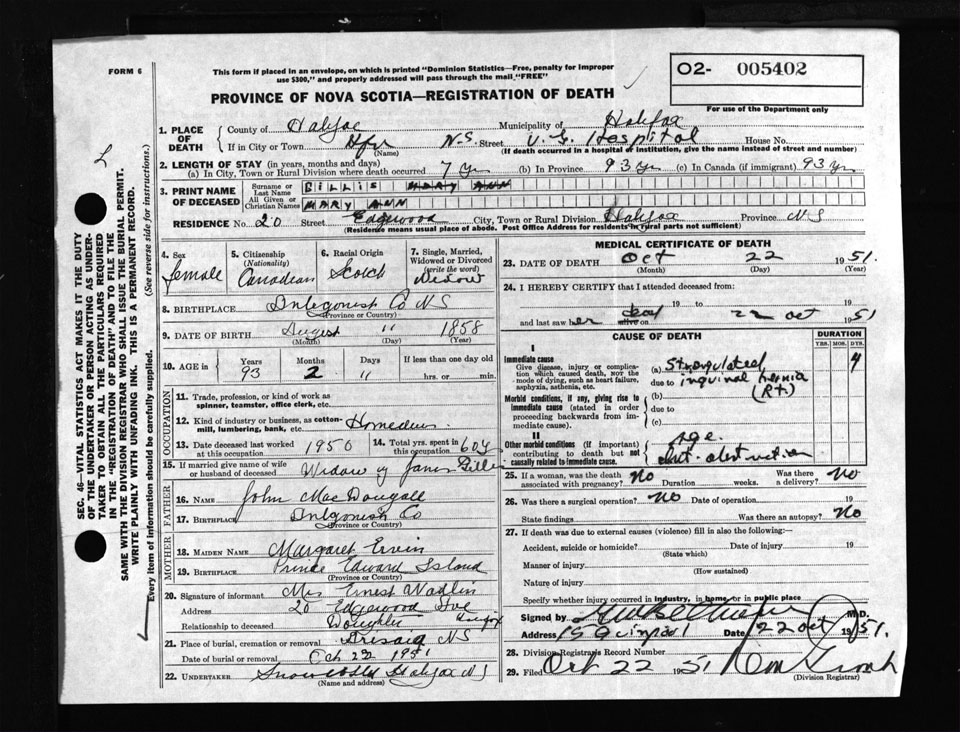 FORM 6
This form if placed in an envelope, on which is printed "Dominion Statistics—Free, penalty for improper
use $300," and properly addressed will pass through the mail "FREE"
02- 005402
For use of the Department only
PROVINCE OF NOVA SCOTIA—REGISTRATION OF DEATH
SEC. 46—VITAL STATISTICS ACT MAKES IT THE DUTY
OF THE UNDERTAKER OR PERSON ACTING AS UNDER-
TAKER TO OBTAIN ALL THE PARTICULARS REQUIRED
IN THE "REGISTRATION OF DEATH" AND TO FILE THE
SAME WITH THE DIVISION REGISTRAR WHO SHALL ISSUE THE BURIAL PERMIT.
WRITE PLAINLY WITH UNFADING INK. THIS IS A PERMANENT RECORD.
Every item of information should be carefully supplied. (See reverse side for instructions.)
1. PLACE OF DEATH County of Halifax Municipality of Halifax
If in City or Town Hfx N.S. Street V.G. Hospital House No.
(Name) (If death occurred in a hospital or institution, give the name instead of street and number)
2. LENGTH OF STAY (in years, months and days)
(a) In City, Town or Rural Division where death occurred 7 yrs (b) In Province 93 yrs (c) In Canada (if immigrant) 93 yrs
3. PRINT NAME OF DECEASED Surname or Last Name GILLIS MARY ANN
All Given or Christian Names MARY ANN
RESIDENCE No. 20 Street Edgewood City, Town or Rural Division Halifax Province NS
(Residence means usual place of abode. Post Office Address for residents in rural parts not sufficient)
4. Sex female
5. Citizenship (Nationality) Canadian
6. Racial Origin Scotch
7. Single, Married, Widowed or Divorced (write the word) Widow
8. BIRTHPLACE Antigonish Co NS
(Province or Country)
9. DATE OF BIRTH August " 1858
(Month) (Day) (Year)
10. AGE in Years 93 Months 2 Days " If less than one day old
hrs. or min.
OCCUPATION
11. Trade, profession or kind of work as
spinner, teamster, office clerk, etc.
12. Kind of industry or business, as cotton-
mill, lumbering, bank, etc.
13. Date deceased last worked at this occupation 1950 14. Total yrs. spent in this occupation 60 y
15. If married give name of wife or husband of deceased Widow of James Gillis
FATHER
16. NAME John MacDougall
17. BIRTHPLACE Antigonish Co
(Province or Country)
MOTHER
18. MAIDEN NAME Margaret Ervin
19. BIRTHPLACE Prince Edward Island
(Province or Country)
20. Signature of informant Mrs Ernest
Address 20 Edgewood Ave Halifax
Relationship to deceased Daughter
21. Place of burial, cremation or removal Arisaig NS
Date of burial or removal Oct 22 1951
22. UNDERTAKER Halifax NS
(Name and address)
MEDICAL CERTIFICATE OF DEATH
23. DATE OF DEATH Oct 22 1951.
(Month) (Day) (Year)
24. I HEREBY CERTIFY that I attended deceased from:
19 to 19
and last saw her dead alive on 22 Oct 1951
CAUSE OF DEATH
DURATION
YRS. MOS. DYS.
I
Immediate cause
Give disease, injury or complica-
tion which caused death, NOT the
mode of dying, such as heart failure,
asphyxia, asthenia, etc.
(a) Strangulated 4
due to inguinal hernia
(Rt)
Morbid conditions, if any, giving rise to
immediate cause (stated in order
proceeding backwards from im-
mediate cause).
(b)
due to
(c)
II
Other morbid conditions (if important)
contributing to death but not
causally related to immediate cause.
Age.
obstruction
25. If a woman, was the death associated with pregnancy? No Duration weeks. Was there a delivery? No
26. Was there a surgical operation? No Date of operation 19
State findings Was there an autopsy? No
27. If death was due to external causes (violence) fill in also the following:—
Accident, suicide or homicide? Date of injury 19
(State which)
Manner of injury
(How sustained)
Nature of injury
Specify whether injury occurred in industry, in home, or in public place
Signed by M.D.
Address Date 22 Oct 1951.
28. Division Registrar's Record Number
29. Filed Oct 22 1951
(Division Registrar)